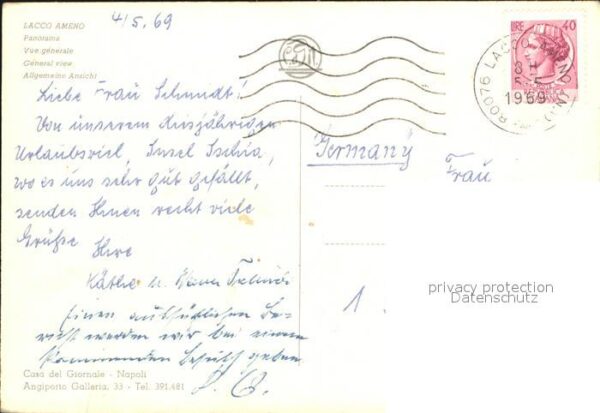 LACCO AMENO
Panorama
Vue générale
General view
Allgemeine Ansicht
4/5. 69
Liebe Frau Schmidt!
Von unserem diesjährigen
Urlaubsziel, Insel Ischia,
wo es uns sehr gut gefällt,
senden Ihnen recht viele
Grüße Ihre
Käthe u.
Einen ausführlichen Be-
richt werden wir bei einem
kommenden Besuch geben
Casa del Giornale - Napoli
Angiporto Galleria, 33 - Tel. 391.481
LIRE 40
80076 LACCO AMENO
1969
Germany
Frau
1
privacy protection
Datenschutz